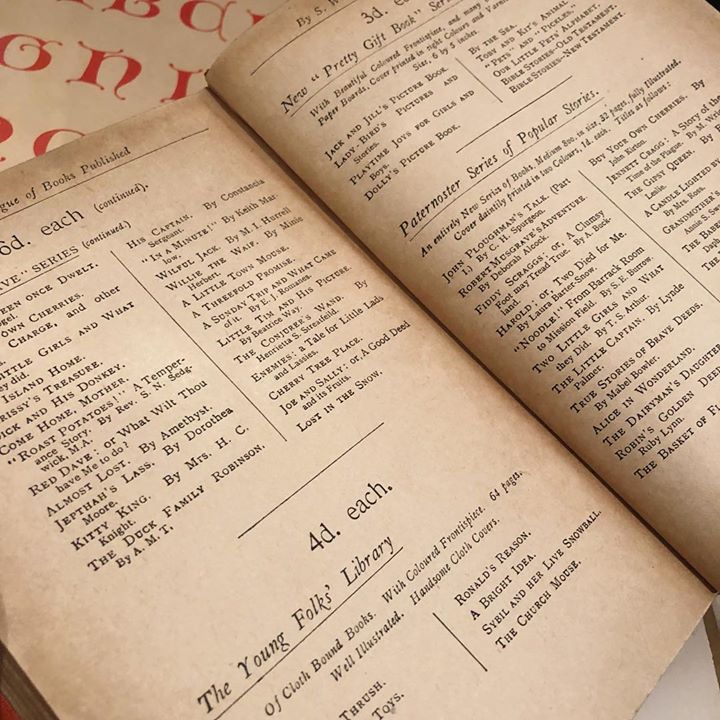 gue of Books Published
6d. each (continued).
VE" SERIES (continued.)
EEN ONCE DWELT.
OWN CHERRIES.
CHARGE, and other
ITTLE GIRLS AND WHAT
ey did.
ISLAND HOME.
RISSY'S TREASURE.
DICK AND HIS DONKEY.
COME HOME, MOTHER.
"ROAST POTATOES!" A Temper-
ance Story. By Rev. S. N. Sedg-
wick, M.A.
RED DAVE: or What Wilt Thou
have Me to do?
ALMOST LOST. By Amethyst.
JEPTHAH'S LASS. By Dorothea
Moore.
KITTY KING. By Mrs. H. C.
Knight.
THE DUCK FAMILY ROBINSON.
By A. M. T.
HIS CAPTAIN. By Constancia
Sergeant.
"IN A MINUTE!" By Keith Mar-
low.
WILFUL JACK. By M. I. Hurrell
WILLIE THE WAIF. By Minie
Herbert.
A LITTLE TOWN MOUSE.
A THREEFOLD PROMISE.
A SUNDAY TRIP AND WHAT CAME
of it. By E. J. Romanes.
LITTLE TIM AND HIS PICTURE
By Beatrice Way.
THE CONJURER'S WAND. By
Henrietta S. Streatfeild.
ENEMIES: a Tale for Little Lads
and Lassies.
CHERRY TREE PLACE.
JOE AND SALLY: or, A Good Deed
and its Fruits.
LOST IN THE SNOW.
4d. each.
The Young Folks' Library
Of Cloth Bound Books. With Coloured Frontispiece. 64 pages.
Well Illustrated. Handsome Cloth Covers.
THRUSH.
TOYS.
RONALD'S REASON.
A BRIGHT IDEA.
SYBIL AND HER LIVE SNOWBALL.
THE CHURCH MOUSE.
By S. W
3d. eac
New "Pretty Gift Book" Serie
With Beautiful Coloured Frontispiece, and many
Paper Boards, Cover printed in eight Colours and
Size, 6 by 5 inches.
JACK AND JILL'S PICTURE BOOK
LADY-BIRD'S PICTURES AND
Stories.
PLAYTIME JOYS FOR GIRLS AND
Boys.
DOLLY'S PICTURE BOOK.
BY THE SEA.
TOBY AND KIT'S ANIMAL
"PETS" AND "PICKLES."
OUR LITTLE PETS' ALPHABET.
BIBLE STORIES—OLD TESTAMENT.
BIBLE STORIES—NEW TESTAMENT.
Paternoster Series of Popular Stories.
An entirely New Series of Books Medium 8vo. in size, 32 pages, fully Illustrated.
Cover daintily printed in two Colours, 1d. each. Titles as follows:
JOHN PLOUGHMAN'S TALK (Part
I.) By C. H. Spurgeon.
ROBERT MUSGRAVE'S ADVENTURE
By Deborah Alcock.
FIDDY SCRAGGS: or, A Clumsy
Foot may Tread True. By A. Buck-
HAROLD: or, Two Died for Me.
By Laura Barter-Snow.
"NOODLE!" From Barrack Room
to Mission Field. By S. E. Burrow.
TWO LITTLE GIRLS AND WHAT
they Did. By T. S. Arthur.
THE LITTLE CAPTAIN. By Lynde
Palmer.
TRUE STORIES OF BRAVE DEEDS.
By Mabel Bowler.
ALICE IN WONDERLAND.
THE DAIRYMAN'S DAUGHTE
ROBIN'S GOLDEN DEED
Ruby Lynn.
THE BASKET OF F
BUY YOUR OWN CHERRIES. By
John Kirton.
JENNETT CRAGG: A Story of the
Time of the Plague. By M. W
THE GIPSY QUEEN. By
Leslie.
A CANDLE LIGHTED
Mrs. S. R
GRANDMOTHE
Anna Ros
THE BAB
Dav
THE